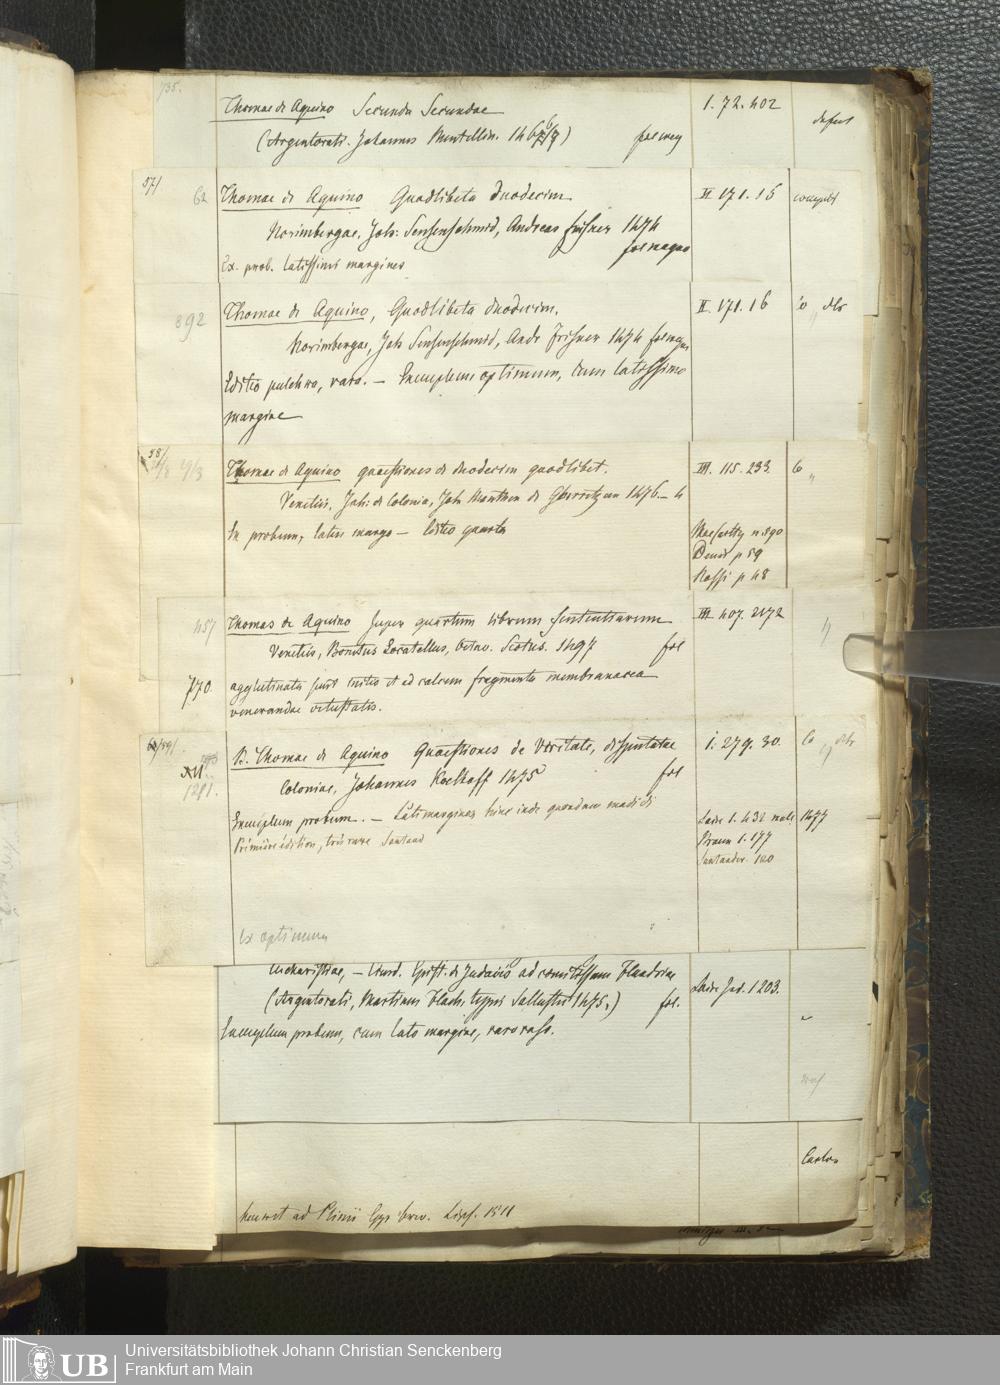 735.
Thomae de Aquino Secunda Secundae I. 72. 402 defect
(Argentorati. Johannes Mentellin. 146 ) fol
57/ 62 Thomae de Aquino Quodlibeta duodecim II 171. 15 complet
Norimbergae, Joh: Sensenschmid, Andreas Frisner 1474
fol magno
Ex. prob. latissimi margines
892 Thomae de Aquino, Quodlibeta duodecim. II. 171. 16
Norimbergae, Joh Sensenschmid, Andr Frisner 1474 fol magno
Editio pulchra, rara. — Exemplum optimum, cum latissimo
margine
58/ Thomae de Aquino quaestiones de duodecim quodlibet. III. 115. 233.
Venetiis, Joh: de Colonia, Joh Manthen de Gherretzem 1476. – 4
Ex probum, latus margo — Editio quarta Macarthy n 890
Denis p 59
Rossi p 48
457 Thomas de Aquino Super quartum librum Sententiarum III. 407. 2172
Venetiis, Bonetus Locatellus, Octav. Scotus. 1497 fol
770. agglutinata sunt initio et ad calcem fragmenta membranacea
venerandae vetustatis.
B. Thomae de Aquino Quaestiones de Veritate, disputatae I. 279. 30.
1291. Coloniae, Johannes Koelhoff 1475 fol
Exemplum probum. — Lati margines hinc inde quondam madidi Laire I. 432 male 1477
Première édition, très rare Santand Braun I. 177
Santander. 120
Ex optimum
eucharistiae, — Ejusd. Epist. de Judaeis ad comitissam Flandriae
(Argentorati, Martinus Flach, typis Sallustii 1475.) fol. Laire Ind. 1203.
Exemplum probum, cum lato margine, raro raso.
ad Plinii Epp Lips. 1511
Universitätsbibliothek Johann Christian Senckenberg
UB Frankfurt am Main